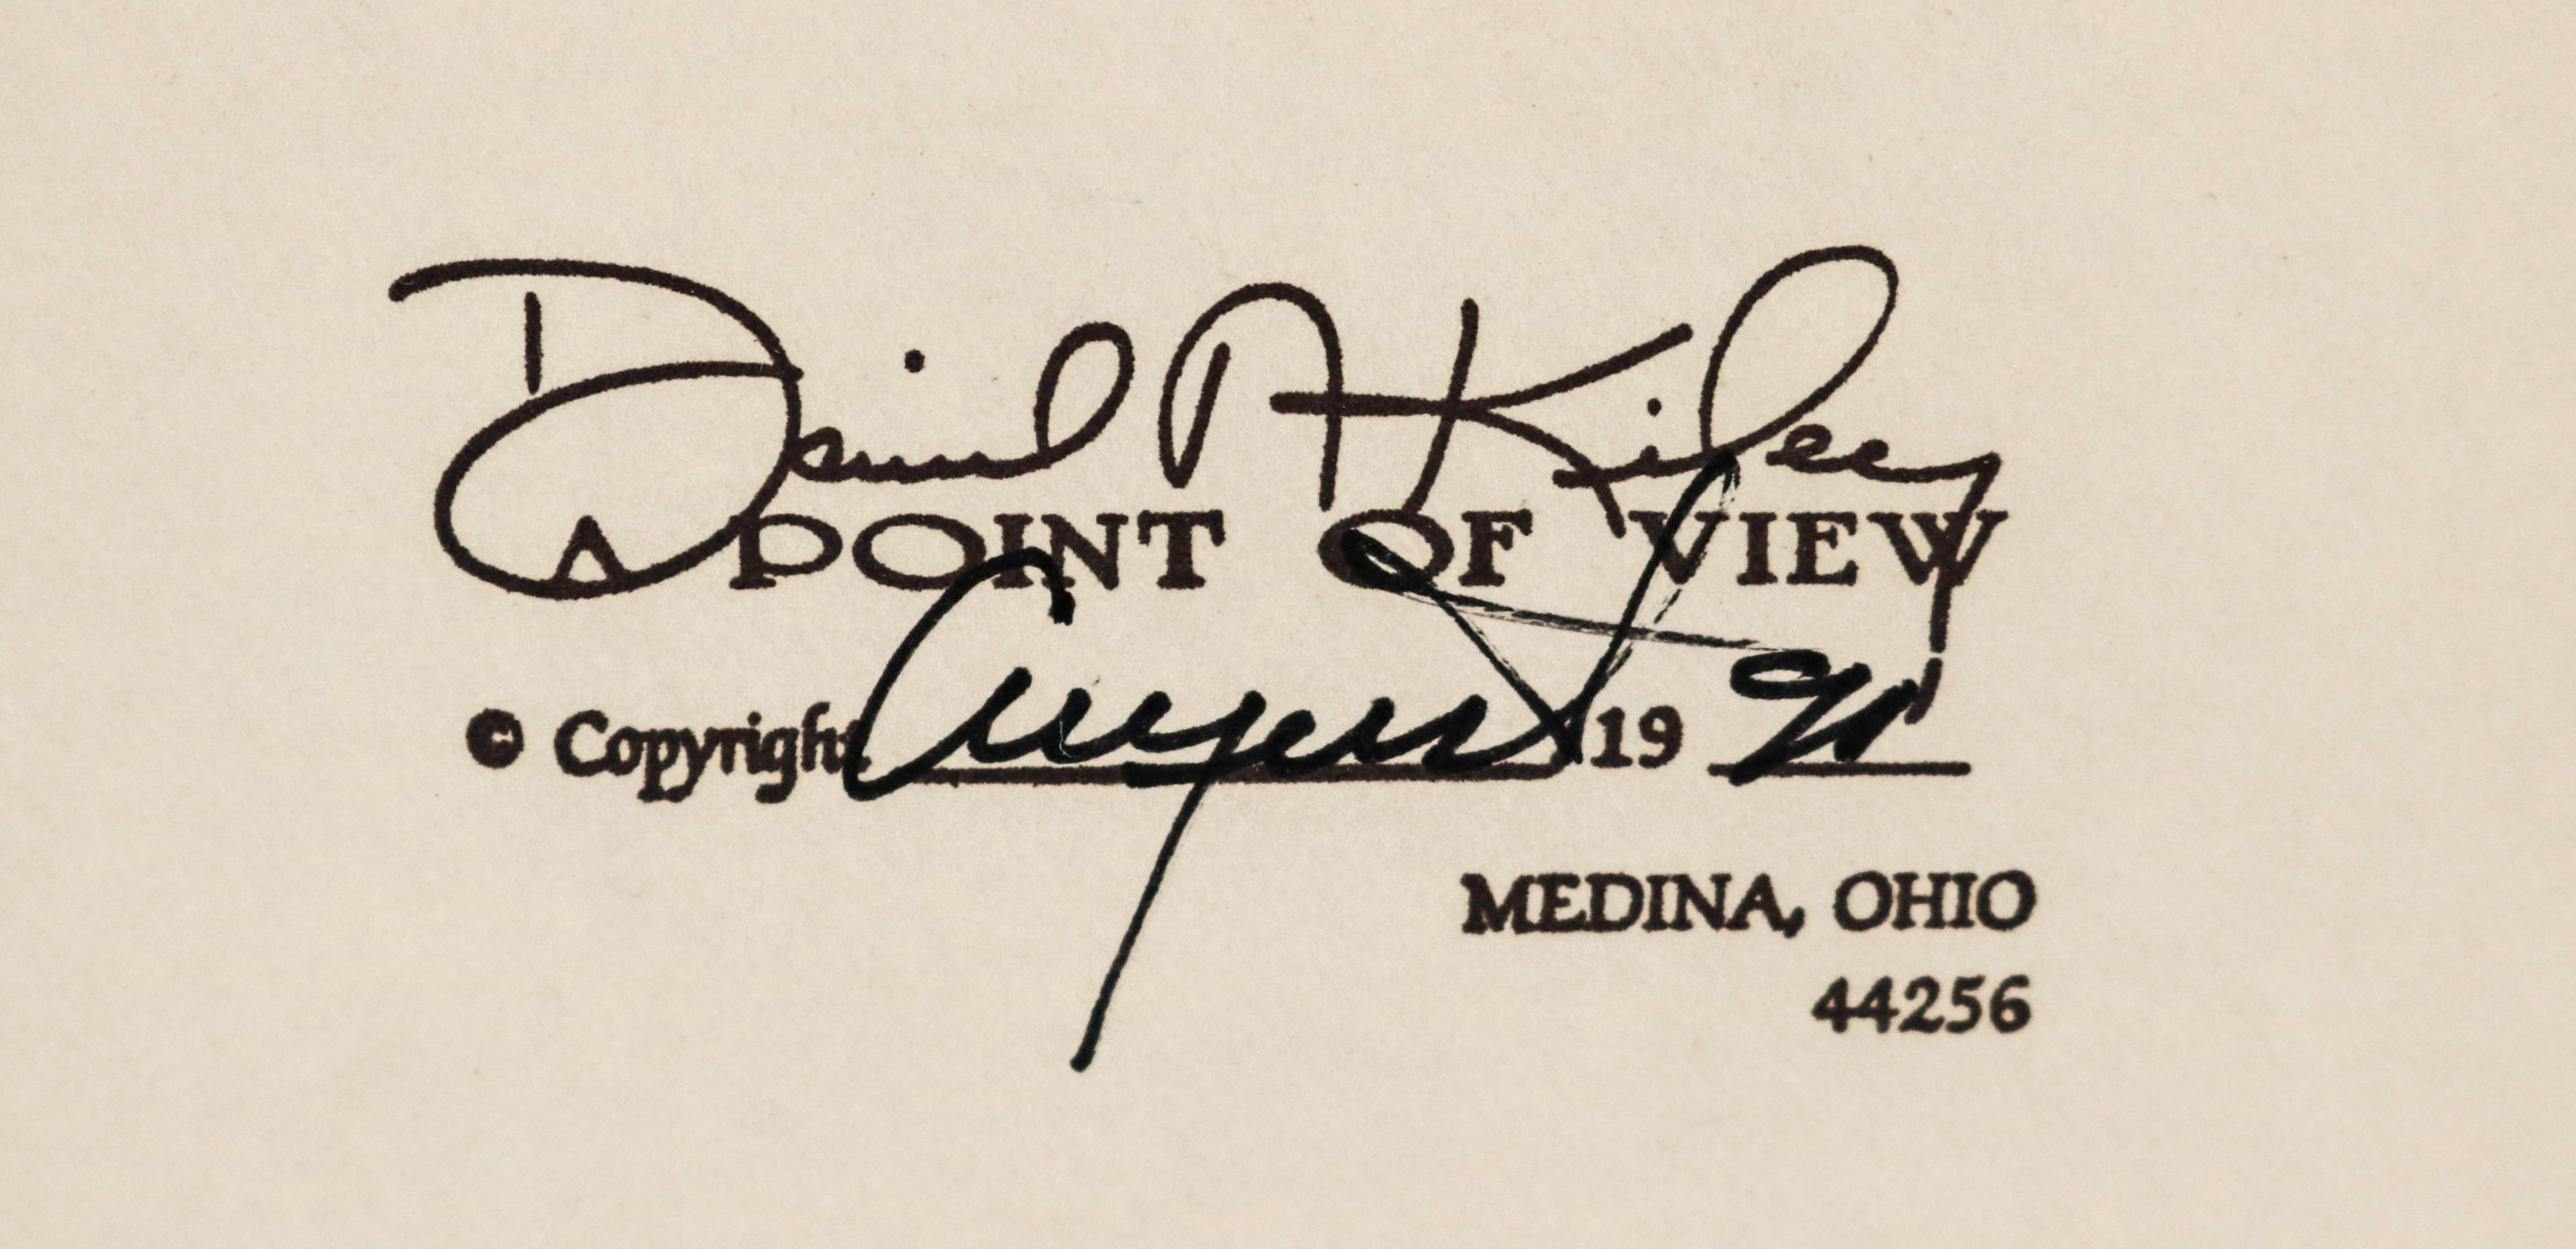 Daniel A Kiley
A POINT OF VIEW
© Copyright August 19
MEDINA, OHIO
44256